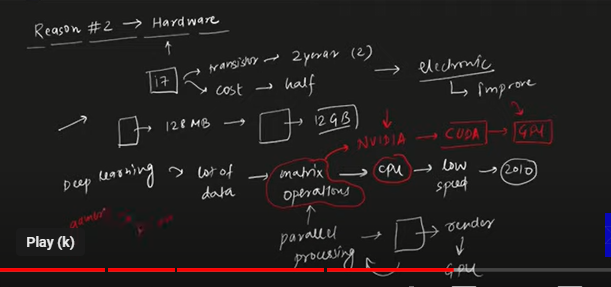 Reason #2 → Hardware
i7 → transistor → 2 year (2) → electronic
→ cost → half
↳ improve
→ 128 MB → 12 GB
NVIDIA → CUDA → GPU
Deep learning → lot of data → matrix operations → CPU → low speed → 2010
parallel processing → → render
GPU
Play (k)